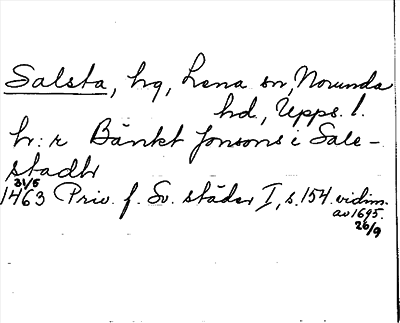 Salsta, hg, Lena sn, Norunda
hd, Upps. l.
hr: r Bänkt Jonsons i Sale-
stadh
31/5
1463 Priv. f. Sv. städer I, s. 154. vidim.
av 1695.
26/9